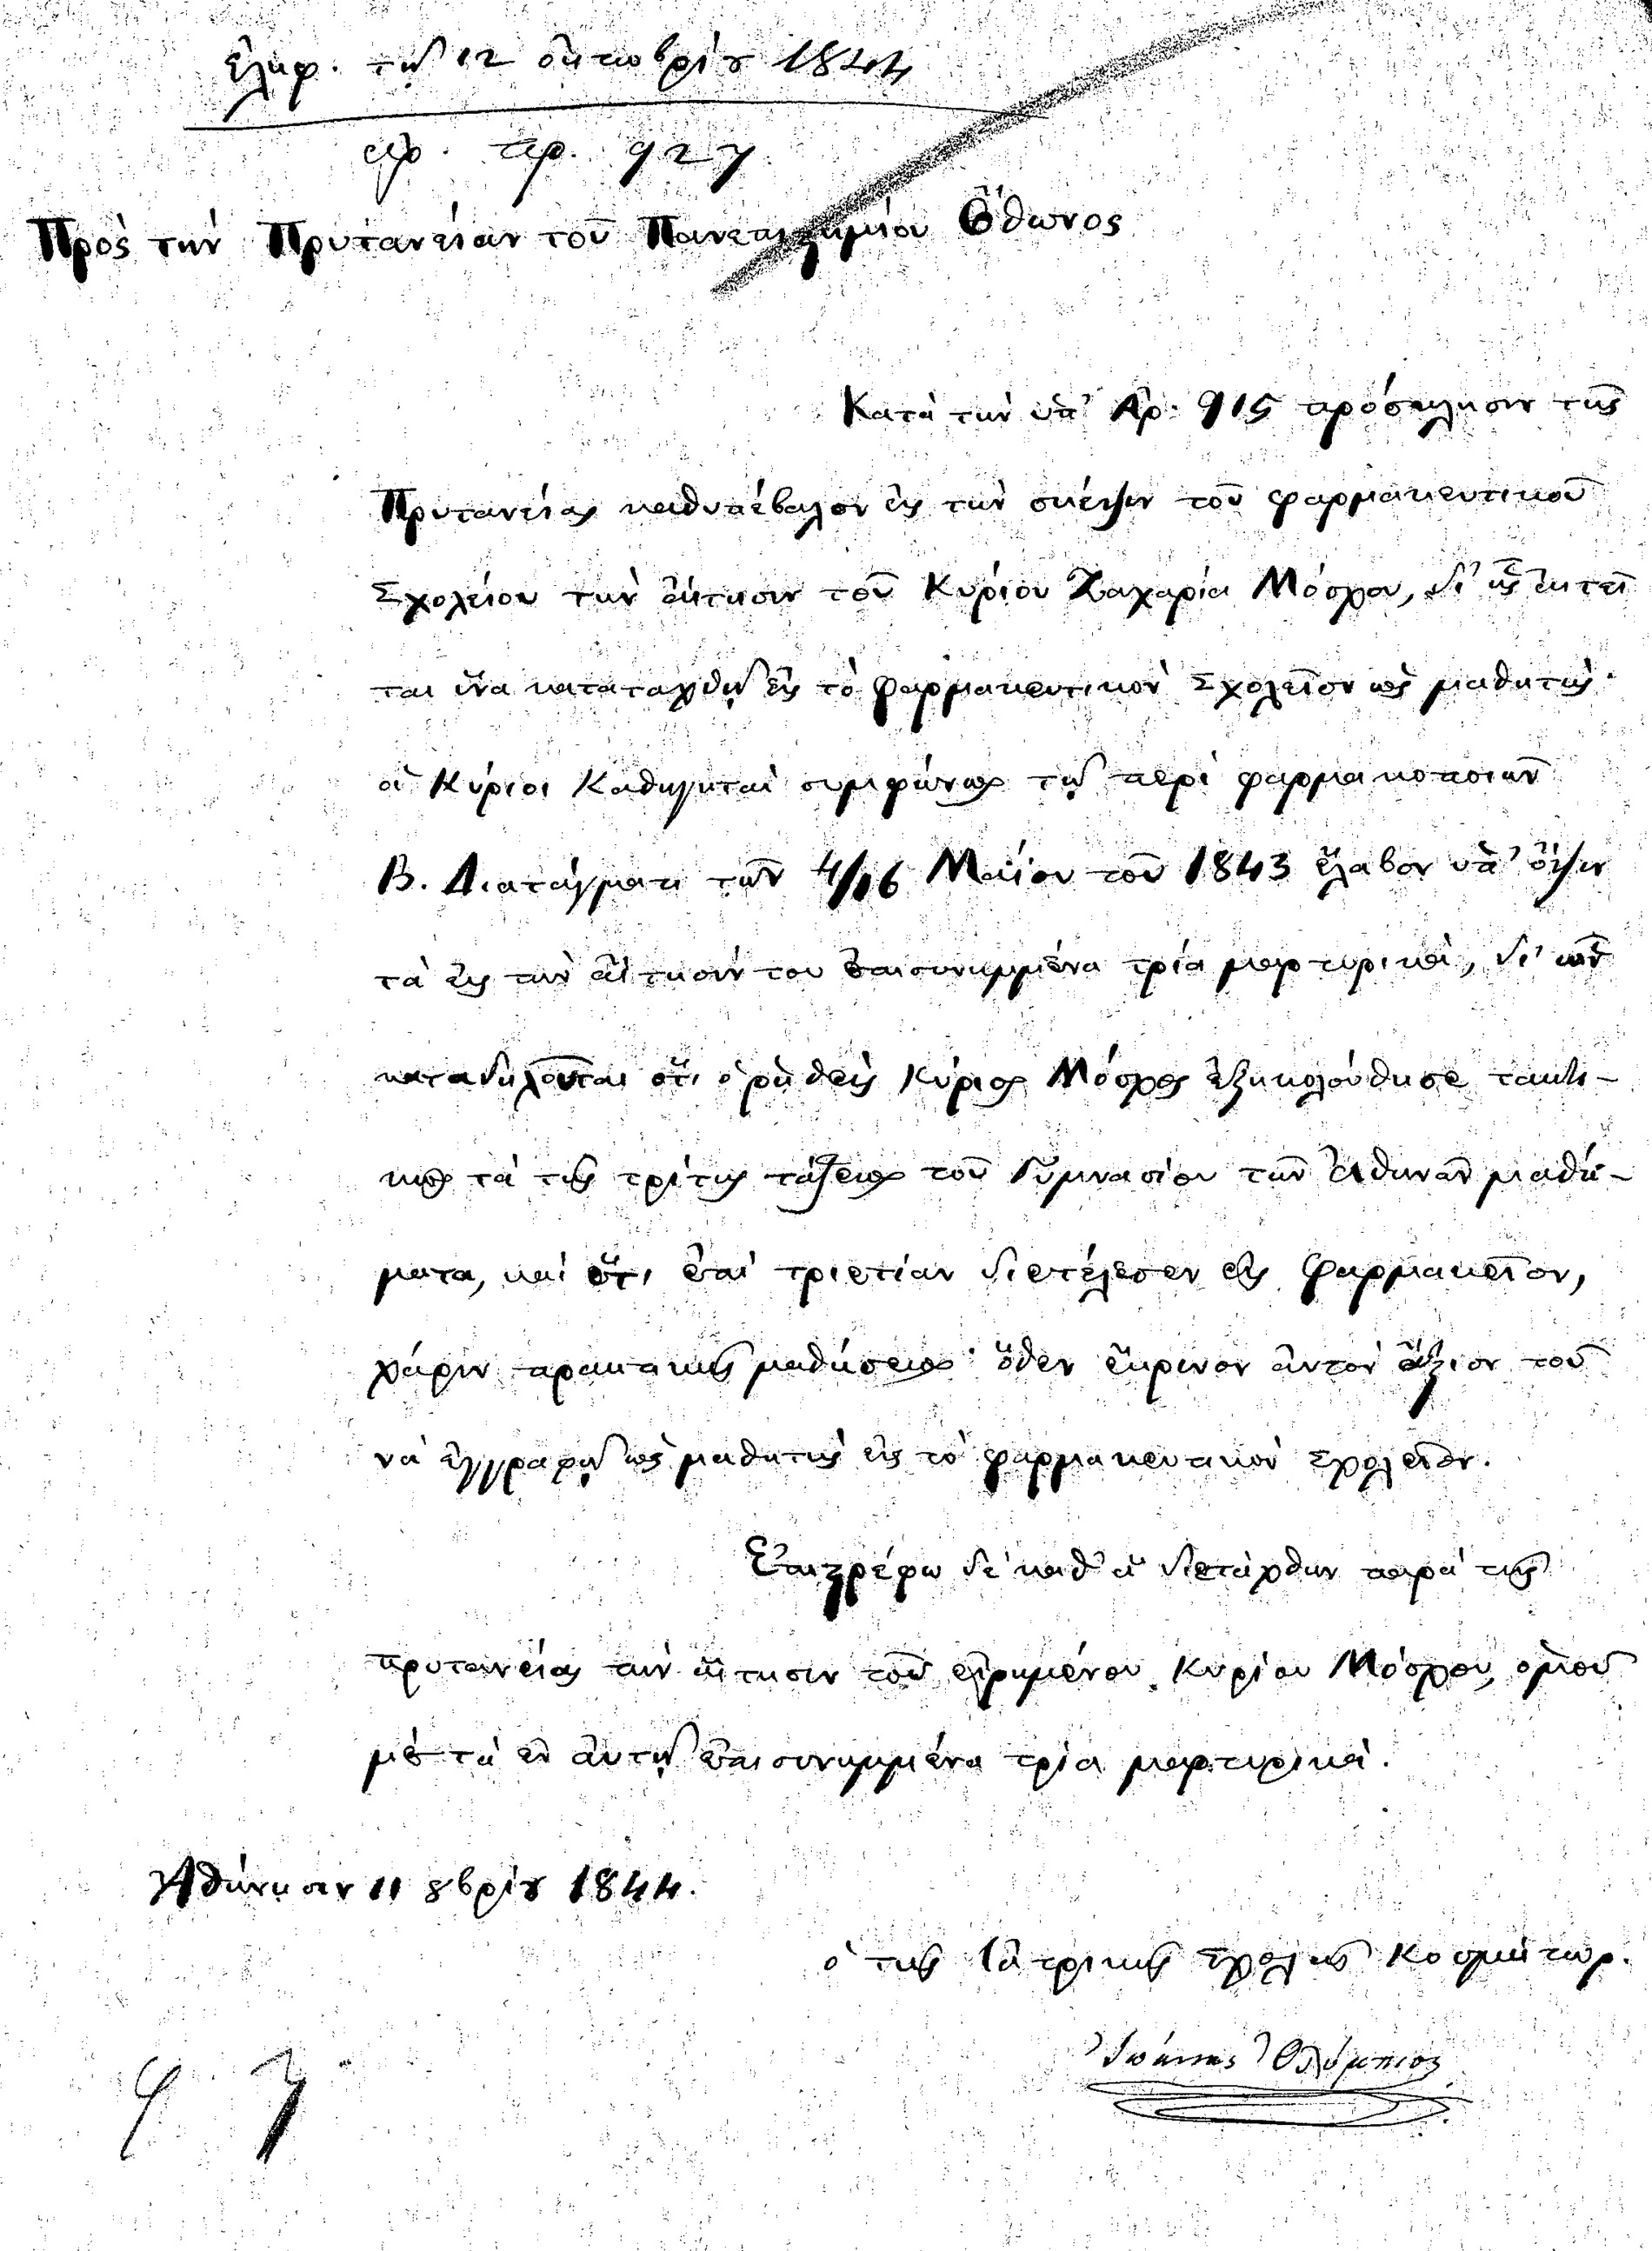 Ἐλήφ. τῇ 12 ὀκτωβρίου 1844
ἀρ. πρ. 927
Πρὸς τὴν Πρυτανείαν τοῦ Πανεπιστημίου Ὄθωνος
Κατὰ τὴν ὑπ' Ἀρ. 915 πρόσκλησιν τῆς
Πρυτανείας καθυπέβαλον εἰς τὴν σκέψιν τοῦ φαρμακευτικοῦ
Σχολείου τὴν αἴτησιν τοῦ Κυρίου Ζαχαρία Μόσχου, δι' ἧς ἐκτεῖ
ται ἵνα καταταχθῇ εἰς τὸ φαρμακευτικὸν Σχολεῖον ὡς μαθητής·
οἱ Κύριοι Καθηγηταὶ συμφώνως τῷ περὶ φαρμακοποιῶν
Β. Διατάγματι τῶν 4/16 Μαΐου τοῦ 1843 ἔλαβον ὑπ' ὄψιν
τὰ εἰς τὴν αἴτησίν του ἐπισυνημμένα τρία μαρτυρικὰ, δι' ὧν
καταδηλοῦται ὅτι ὁ ῥηθεὶς Κύριος Μόσχος ἐξηκολούθησε τακτι-
κῶς τὰ τῆς τρίτης τάξεως τοῦ Γυμνασίου τῶν Ἀθηνῶν μαθή-
ματα, καὶ ὅτι ἐπὶ τριετίαν διετέλεσεν εἰς Φαρμακεῖον,
χάριν πρακτικῆς μαθήσεως· ὅθεν ἔκρινον αὐτὸν ἄξιον τοῦ
νὰ ἐγγραφῇ ὡς μαθητὴς εἰς τὸ φαρμακευτικὸν σχολεῖον.
Ἐπιστρέφω δὲ καθ' ἃ διετάχθην παρὰ τῆς
πρυτανείας τὴν αἴτησιν τοῦ εἰρημένου Κυρίου Μόσχου, ὁμοῦ
μὲ τὰ ἐν αὐτῇ ἐπισυνημμένα τρία μαρτυρικά.
Ἀθήνησιν 11 8βρίου 1844.
ὁ τῆς Ἰατρικῆς Σχολῆς Κοσμήτωρ.
Ἰωάννης Ὀλύμπιος